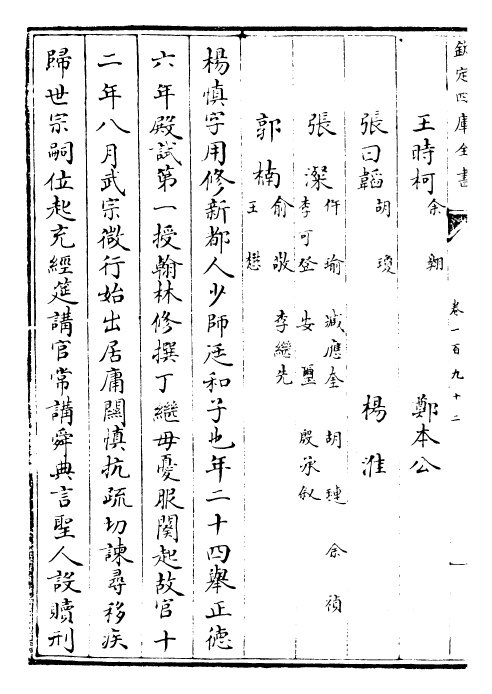 欽定四庫全書
卷一百九十二
一
王時柯余翱 鄭本公
張曰韜胡瓊 楊淮
張澯仵瑜 臧應奎 胡璉 余禎
李可登 安璽 殷承叙
郭楠俞敬 李繼先
王懋
楊慎字用修新都人少師廷和子也年二十四舉正德
六年殿試第一授翰林修撰丁繼母憂服闋起故官十
二年八月武宗微行始出居庸關慎抗疏切諫尋移疾
歸世宗嗣位起充經筵講官常講舜典言聖人設贖刑